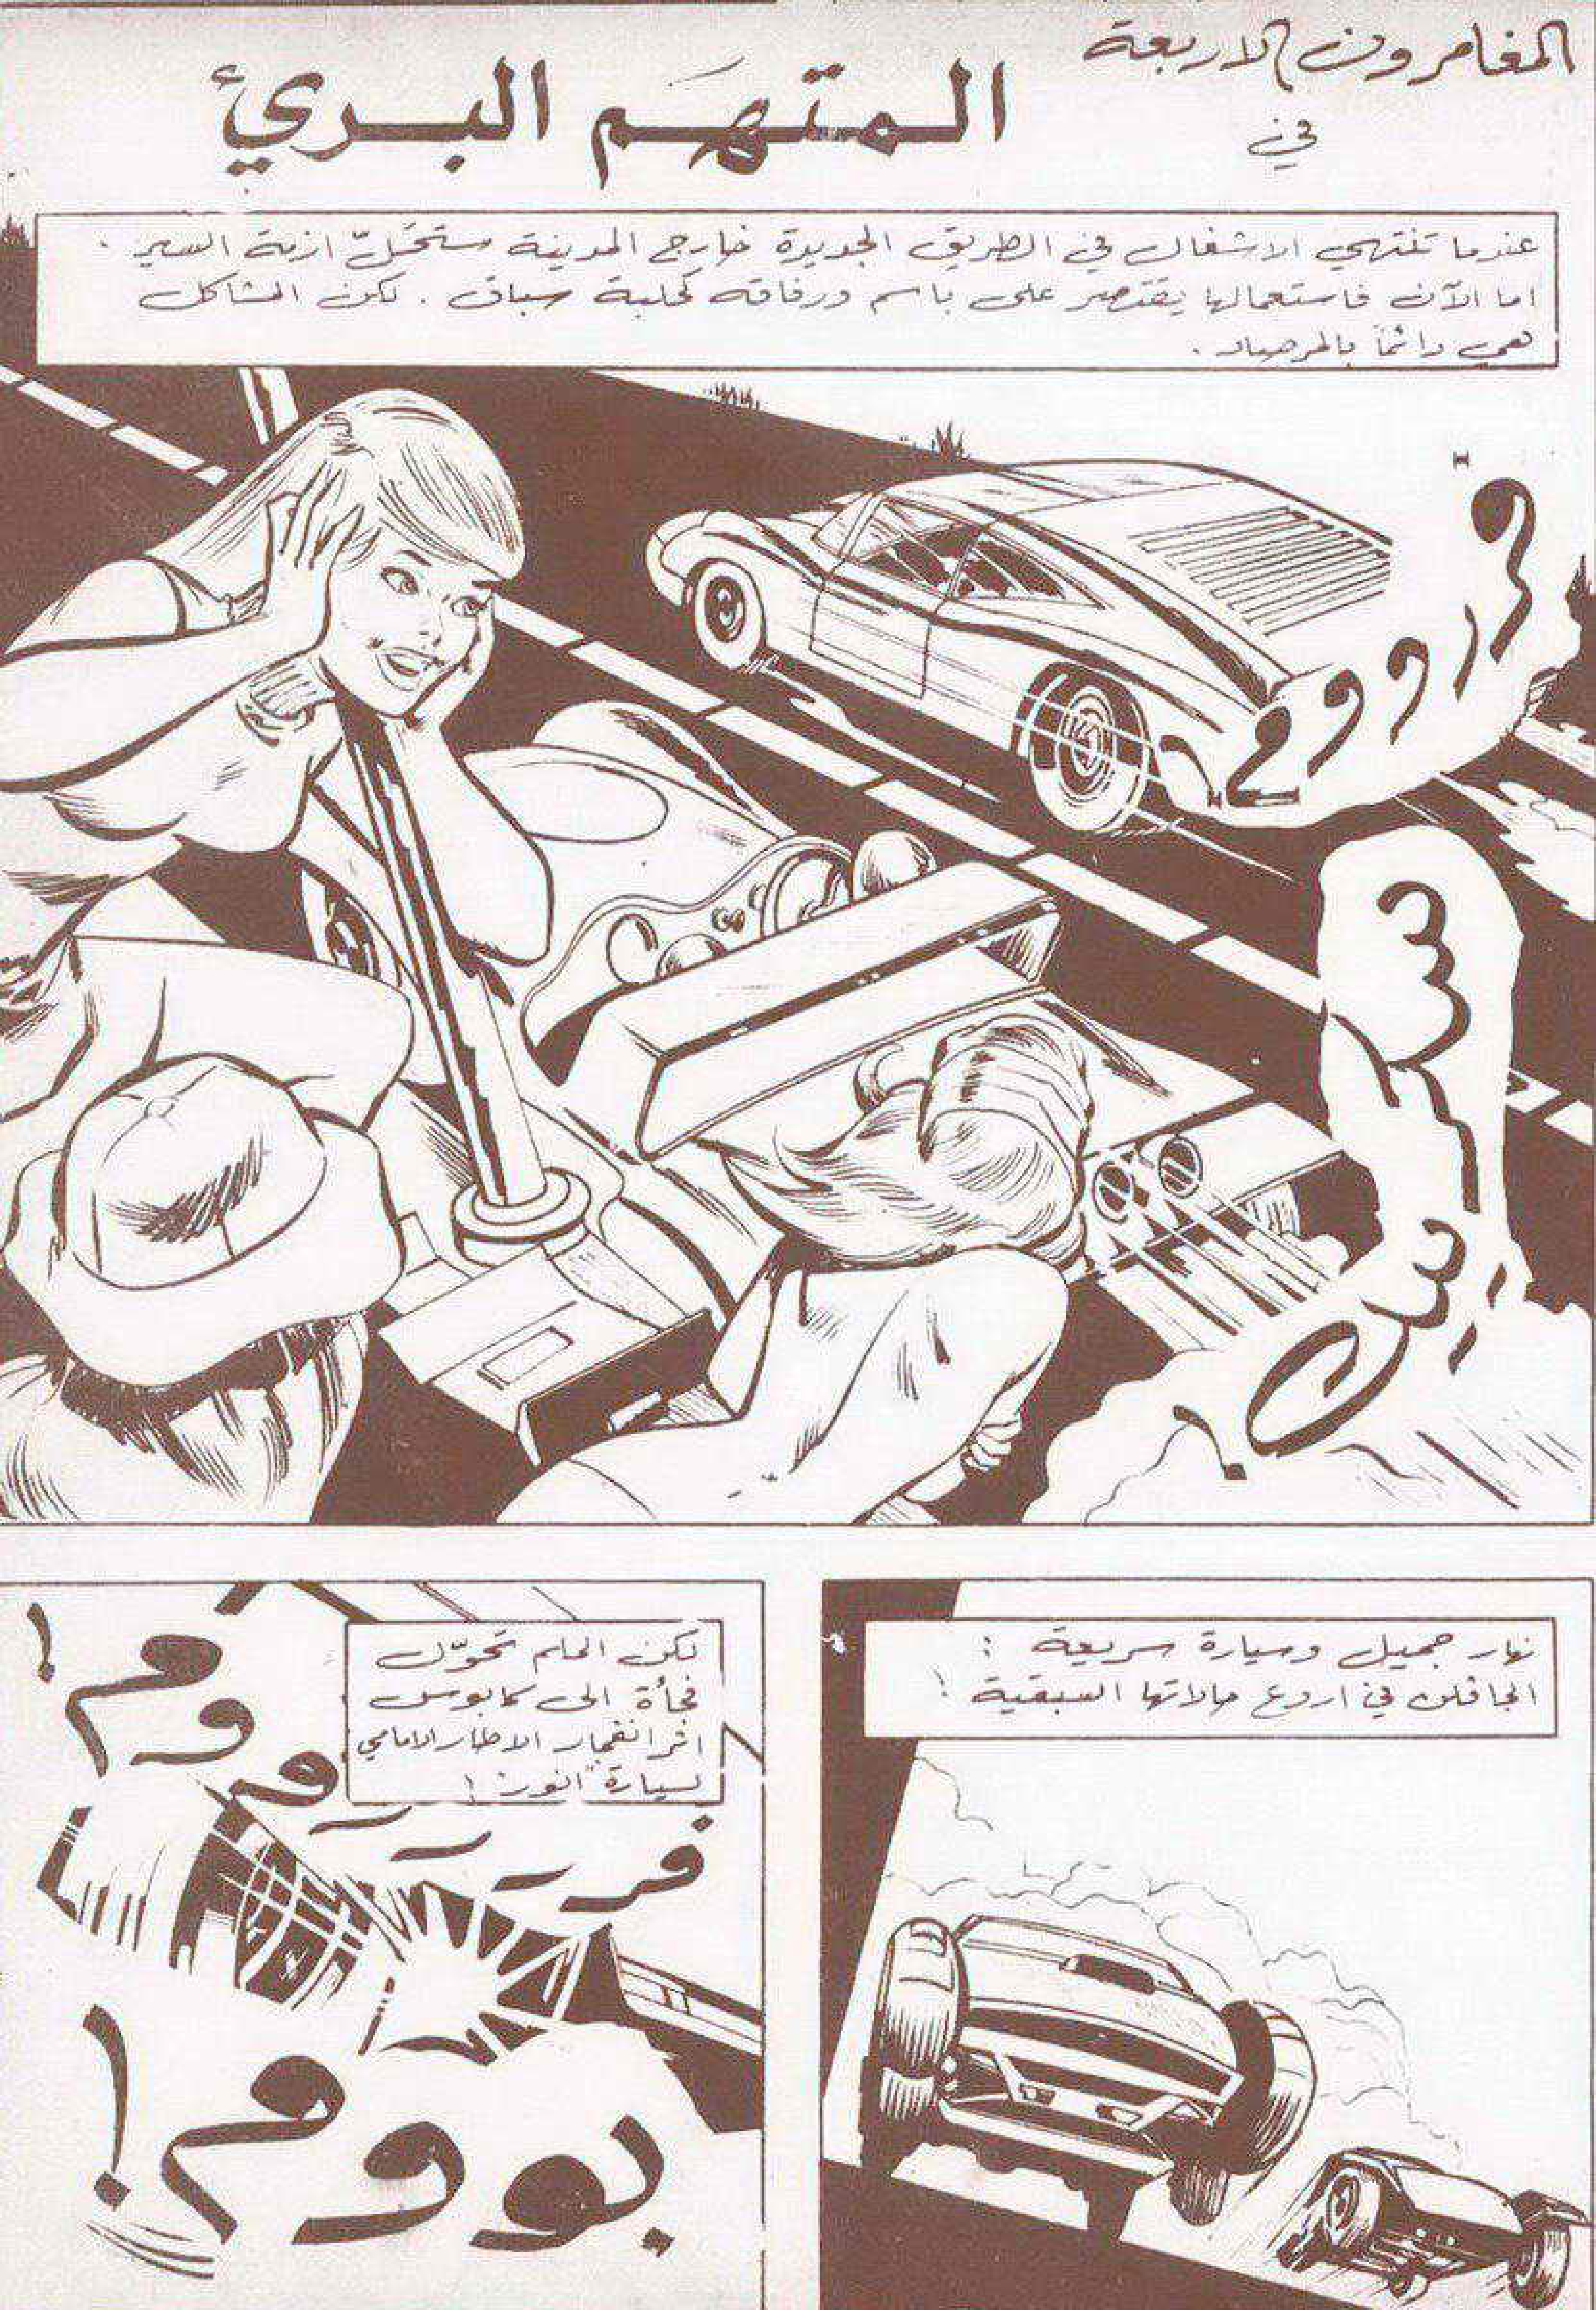 المغامرون الاربعة
في
المتهَم البرئ
عندما تنتهي الاشغال في الطريق الجديدة خارج المدينة ستحَلّ ازمة السير .
اما الآن فاستعمالها يقتصر على باسم ورفاقه كحلبة سباق . لكن المشاكل
هي دائماً بالمرصاد .
نهار جميل وسيارة سريعة :
الجافلن في اروع حالاتها السبقية !
لكن الحلم تحوّل
فجأة الى كابوس
اثر انفجار الاطار الامامي
لسيارة "انور" !
بوووم !